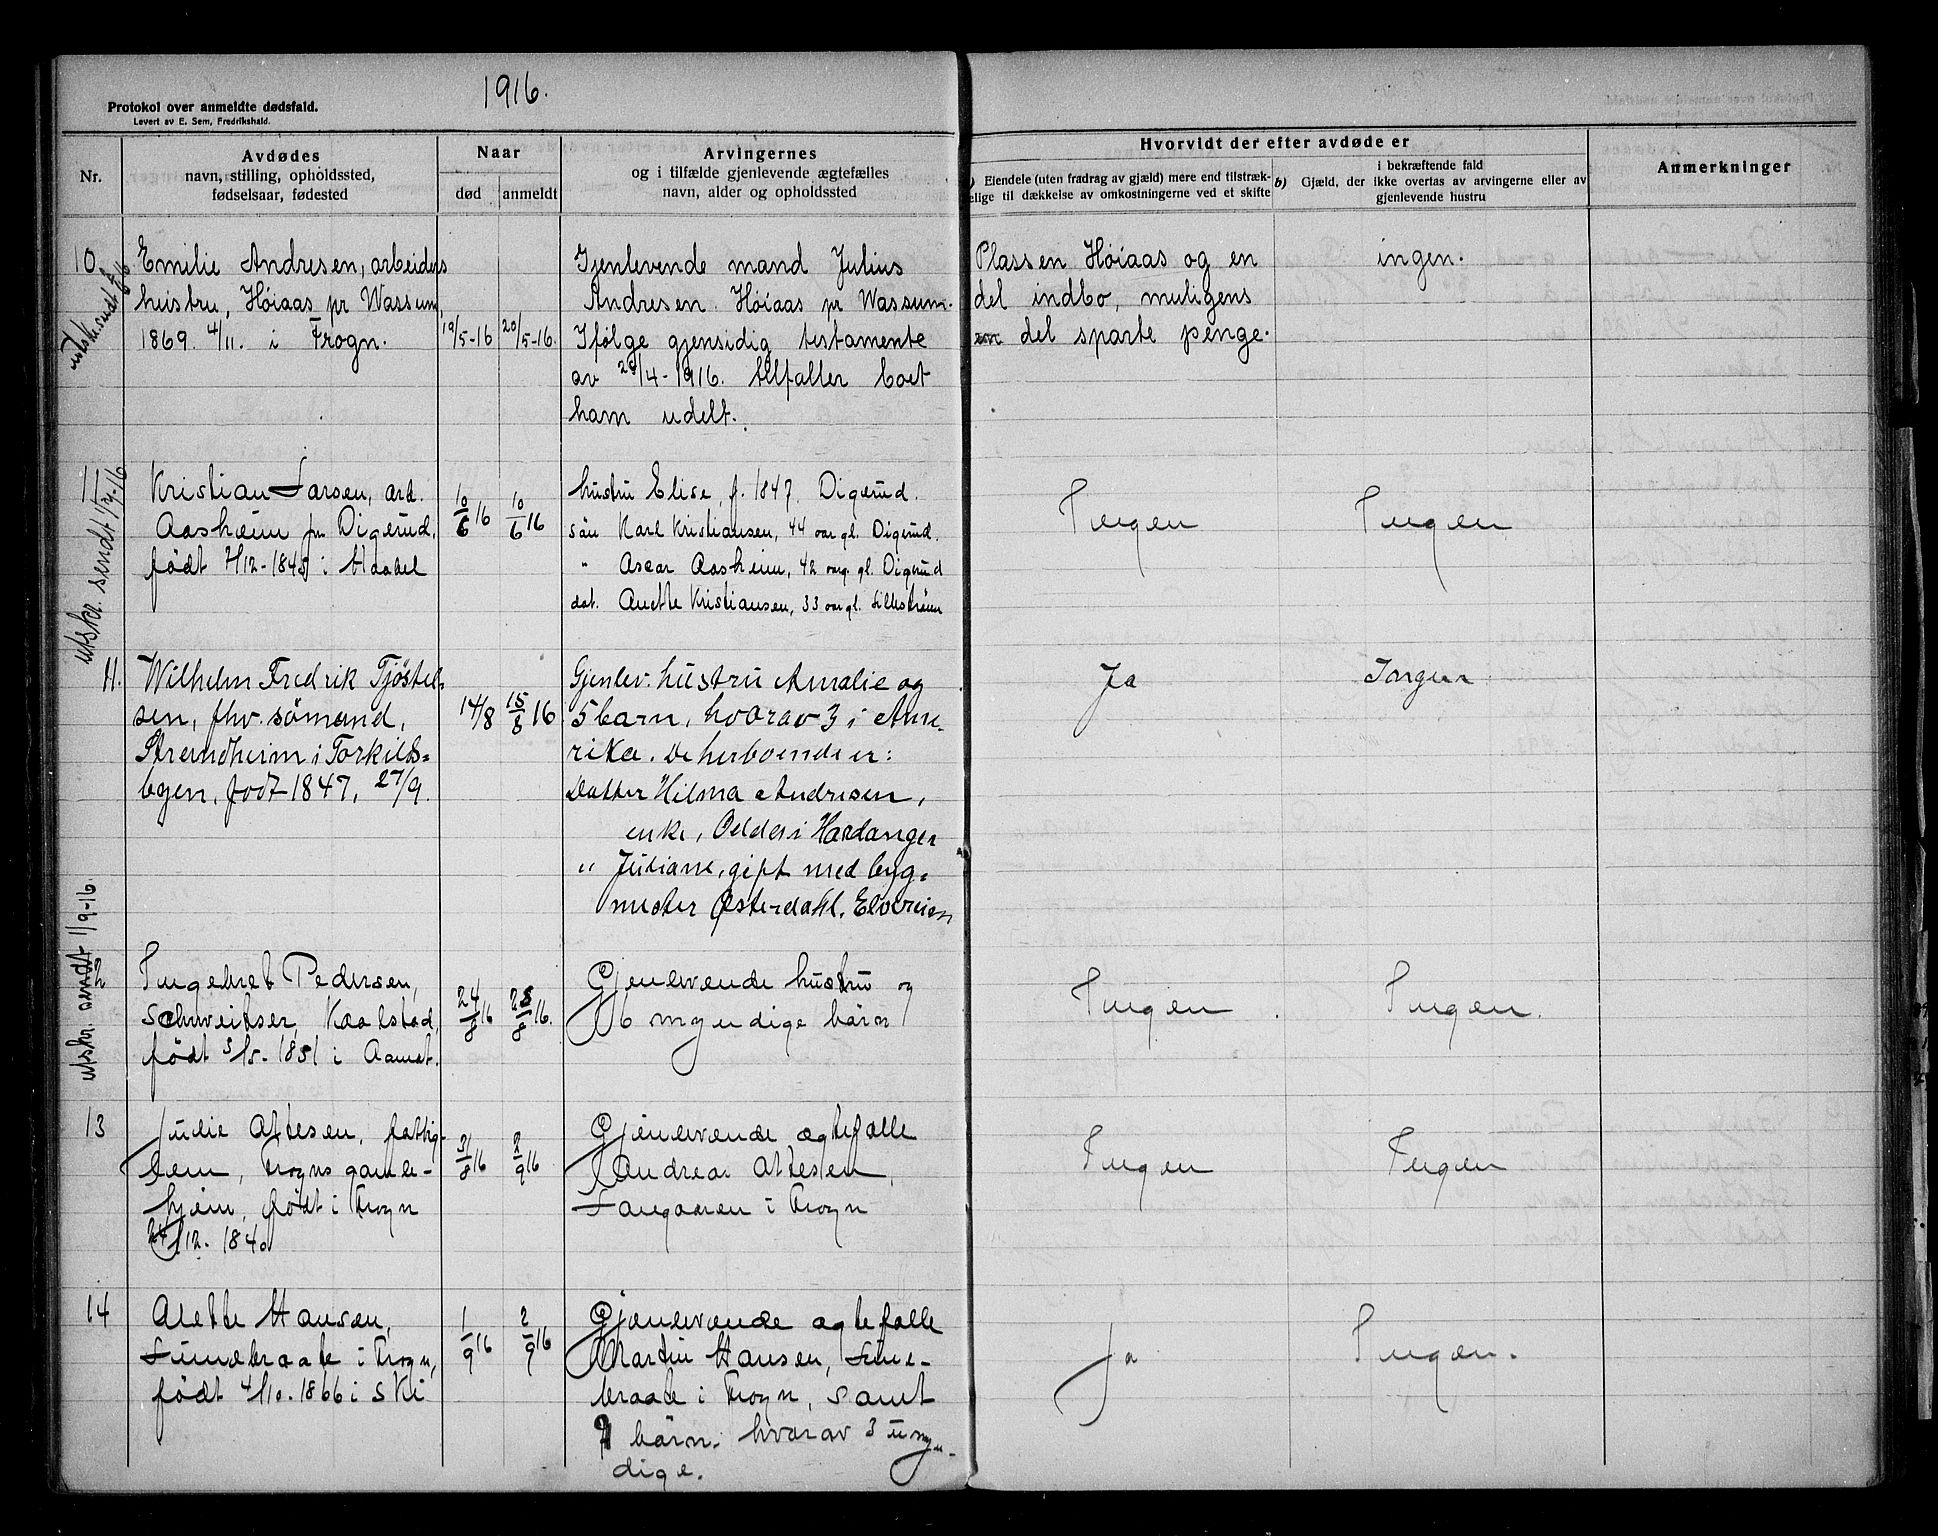 1916.
Protokol over anmeldte dødsfald.
Levert av E. Sem, Fredrikshald.
Nr.
Avdødes
navn, stilling, opholdssted,
fødselsaar, fødested
Naar
død
anmeldt
Arvingernes
og i tilfælde gjenlevende ægtefælles
navn, alder og opholdssted
Hvorvidt der efter avdøde er
Eiendele (uten fradrag av gjæld) mere end tilstræk-
elige til dækkelse av omkostningerne ved et skifte
b) Gjæld, der
i bekræftende fald
ikke overtas av arvingerne eller av
gjenlevende hustru
Anmerkninger
10
Emilie Andresen, arbeiders
hustru, Höiaas pr Wassum,
1869. 4/11. i Frogn.
19/5-16
20/5-16.
Gjenlevende mand Julius
Andresen. Höiaas pr Wassum.
Ifölge gjensidig testamente
av 29/4-1916. tilfaller boet
ham udelt.
Plassen Höiaas og en
del indbo, muligens
en del sparte penge.
ingen.
11
utskr. sendt 1/7-16
Kristian Larsen, arb.
Aasheim pr Digerud,
födt 4/12-1845 i Haabøl
10/6 16
10/6 16
hustru Elise, f. 1847. Digerud.
sön Karl Kristiansen, 44 aar gl. Digerud.
" Oscar Aasheim, 42 aar gl. Digerud
dat. Anette Kristiansen, 33 aar gl. Lilleström
Ingen
Ingen
11.
Wilhelm Fredrik Tjöstel-
sen, fhv. sömand,
Strandheim i Torkilds-
byen, födt 1847, 27/9.
14/8
15/8 16
Gjenlev. hustru Amalie og
5 barn, hvorav 3 i Ame-
rika. De herboende er:
Datter Hilma Andresen,
enke, Odda i Hardanger
" Juliane, gift med byg-
mester Østerdahl, Elvereien
Ja
Ingen
utskr. sendt 1/9-16.
12
Ingebret Pedersen,
Schweitser, Kaalstad,
födt 5/5-1851 i Aamot.
24/8 16
28/8 16.
Gjenlevende hustru og
6 myndige börn
Ingen
Ingen.
13
Julie Ottesen, fattig-
lem, Frogns gamle-
hjem, födt i Frogn
24/12. 1840
31/8 16
2/9 16
Gjenlevende ægtefælle
Andreas Ottesen,
Langaaren i Frogn
Ingen
Ingen
14
Alette Hansen,
Lundebraate i Frogn,
födt 4/10. 1866 i Ski
1/9 16
2/9 16
Gjenlevende ægtefælle
Martin Hansen, Lunde-
braate i Frogn, samt
9 börn, hvorav 3 umyn-
dige.
Ja
Ingen.